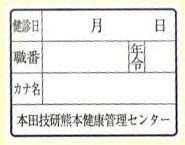 健診日 月 日
職番 年令
カナ名
本田技研熊本健康管理センター